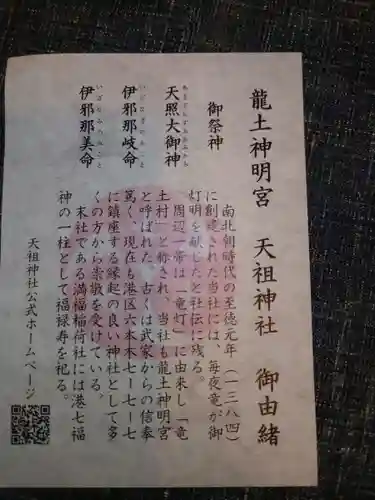 龍土神明宮 天祖神社 御由緒
御祭神
天照大御神
あまてらすおおみかみ
伊邪那岐命
いざなぎのみこと
伊邪那美命
いざなみのみこと
南北朝時代の至徳元年(一三八四)
に創建された当社には、毎夜竜が御
灯明を献じたと社伝に残る。
周辺一帯は「竜灯」に由来し「竜
土村」と称され、当社も龍土神明宮
と呼ばれた。古くは武家からの信奉
篤く、現在も港区六本木7-7-7
に鎮座する縁起の良い神社として多
くの方から崇敬を受けている。
末社である満福稲荷社には港七福
神の一柱として福禄寿を祀る。
天祖神社公式ホームページ